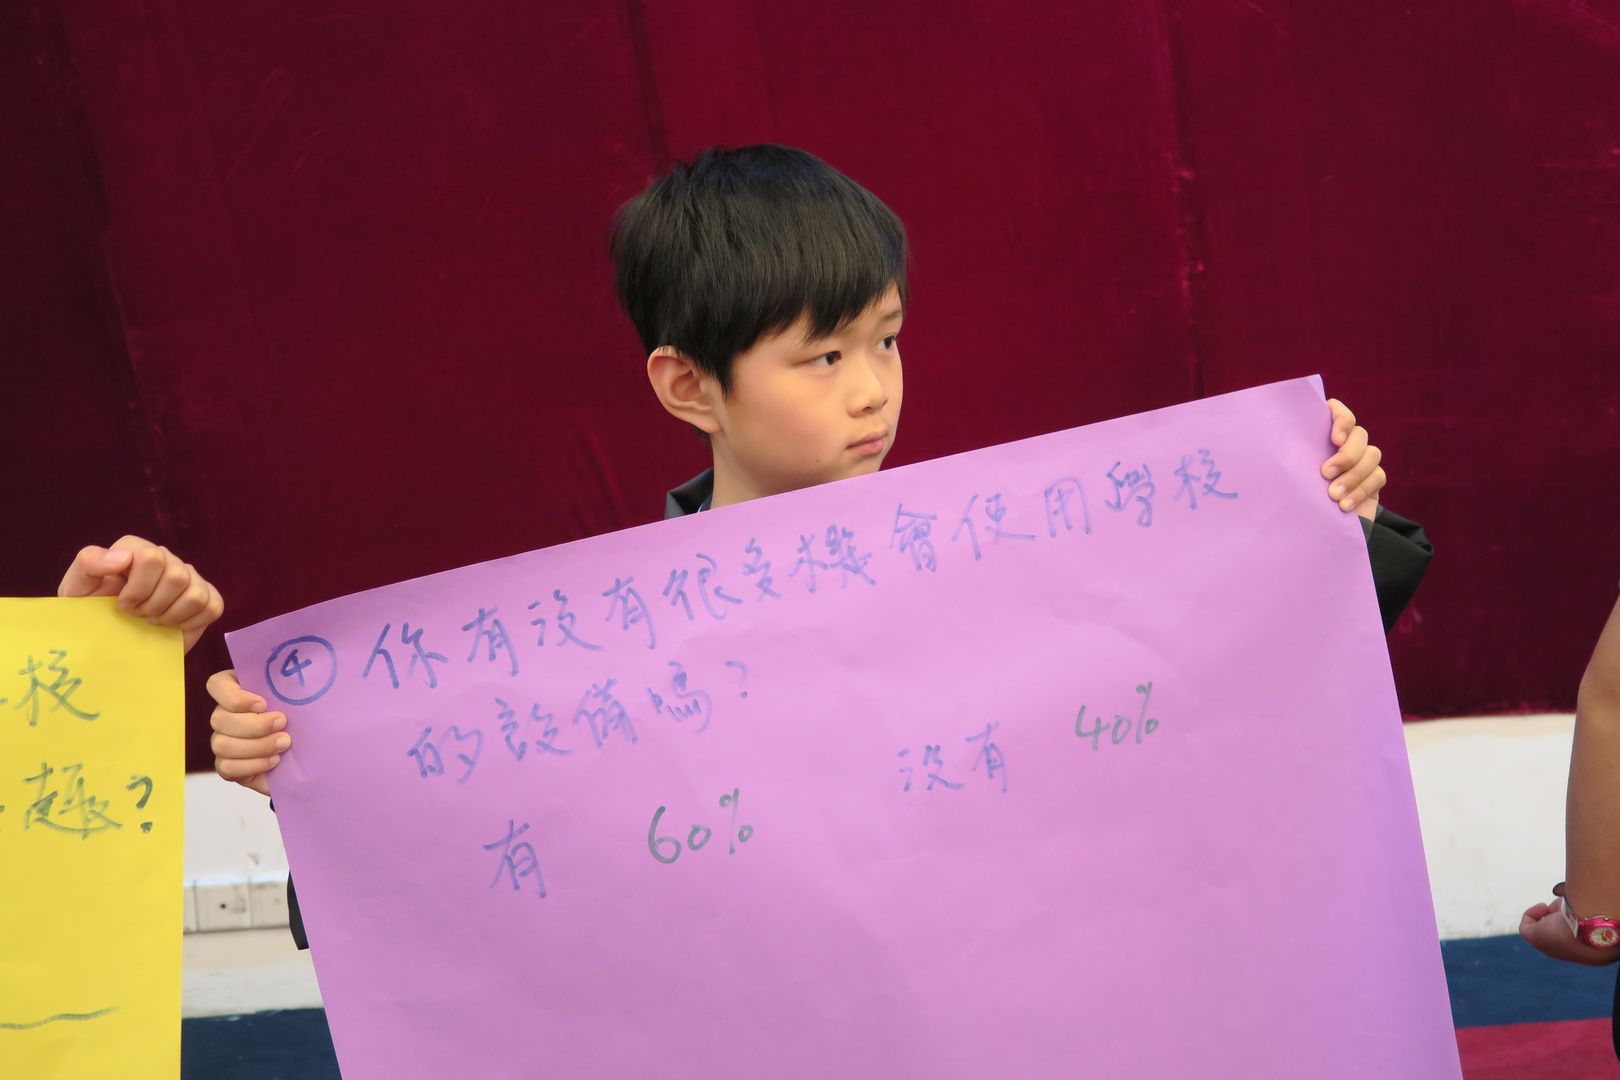 ④ 你有沒有很多機會使用學校
的設備嗎?
有 60% 沒有 40%
校
趣?